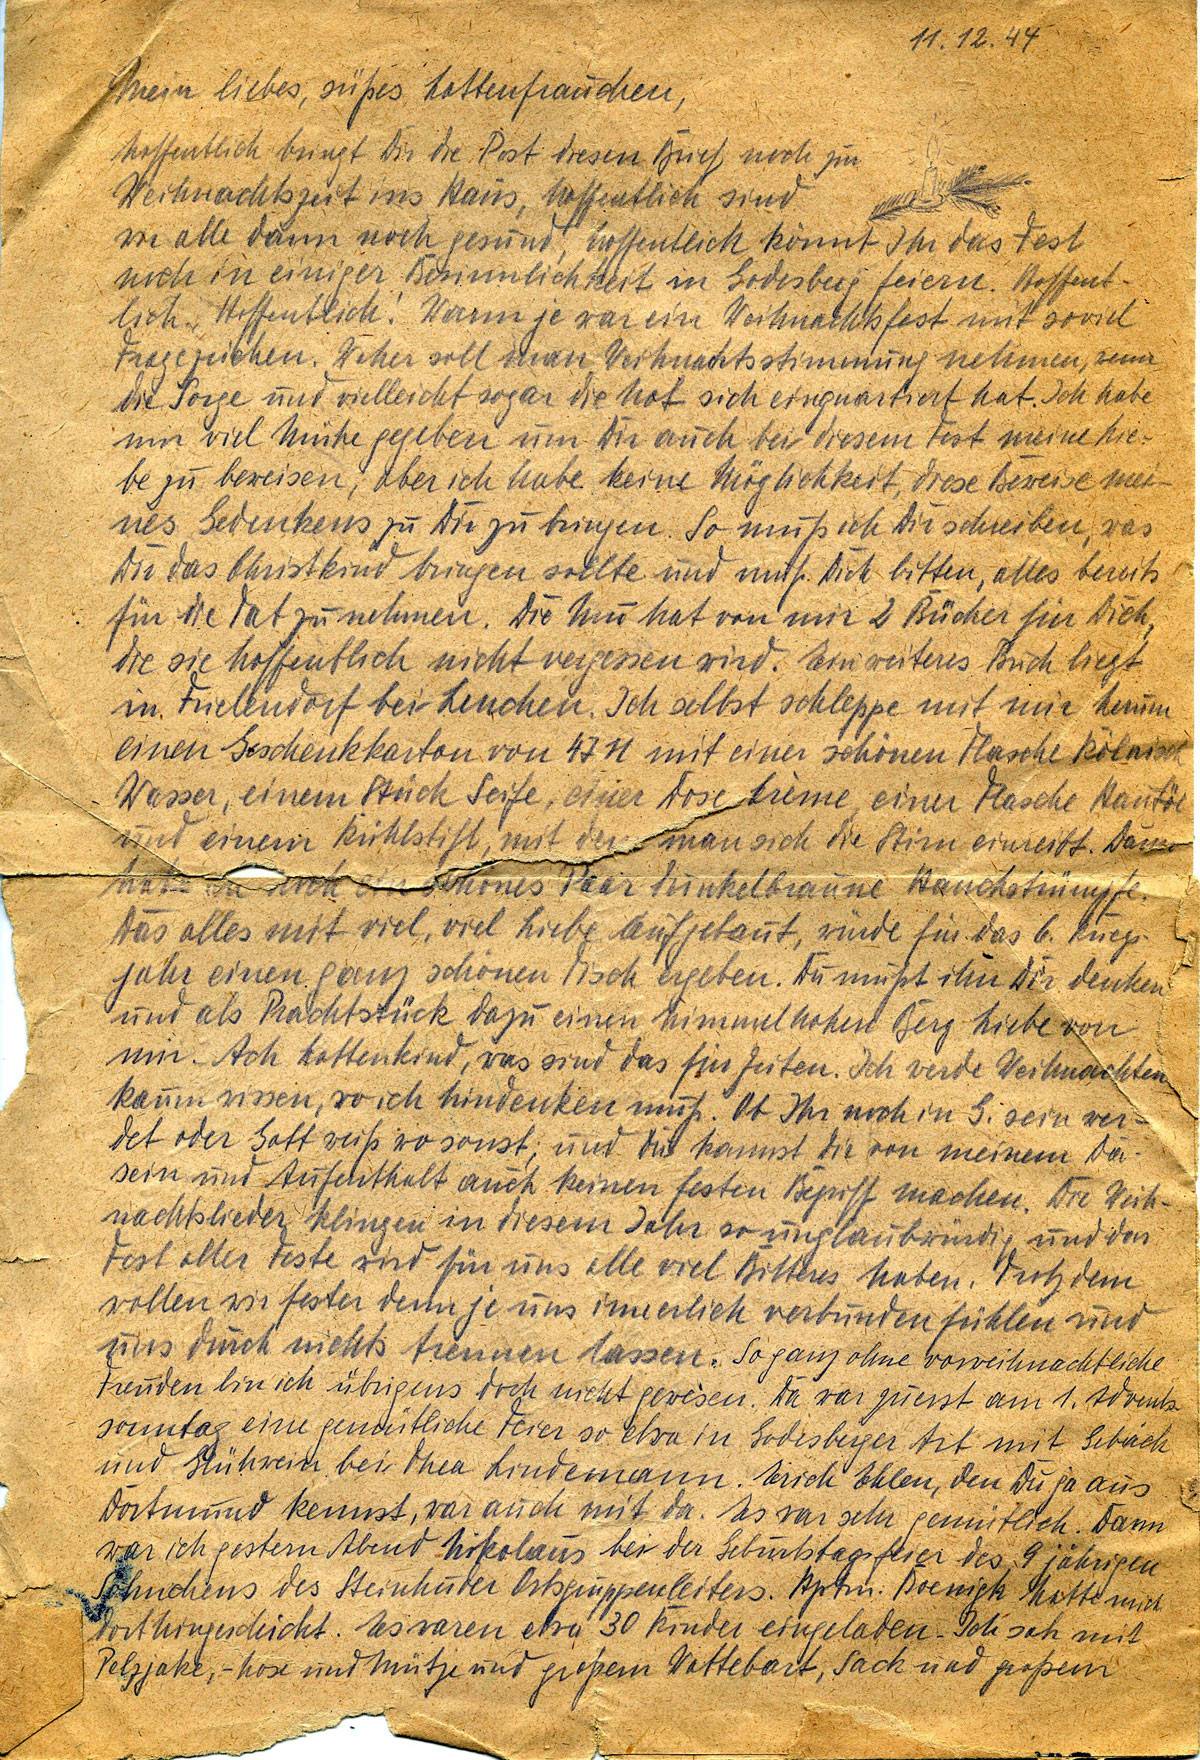 11.12.44
Mein liebes, süßes Lottenfrauchen,
hoffentlich bringt Dir die Post diesen Brief noch zur
Weihnachtszeit ins Haus, hoffentlich sind
wir alle dann noch gesund, hoffentlich könnt Ihr das Fest
noch in einiger Besinnlichkeit in Godesberg feiern. Hoffent-
lich. Hoffentlich! Wann je war ein Weihnachtsfest mit soviel
Fragezeichen. Woher soll man Weihnachtsstimmung nehmen, wenn
die Sorge und vielleicht sogar die Not sich einquartiert hat. Ich habe
mir viel Mühe gegeben um Dir auch bei diesem Fest meine Lie-
be zu beweisen, aber ich habe keine Möglichkeit, diese Beweise mei-
nes Gedenkens zu Dir zu bringen. So muß ich Dir schreiben, was
Dir das Christkind bringen sollte und muß Dich bitten, alles bereits
für die Tat zu nehmen. Die Mu hat von mir 2 Bücher für Dich,
die sie hoffentlich nicht vergessen wird. Ein weiteres Buch liegt
in Frielendorf bei Lenchen. Ich selbst schleppe mit mir herum
einen Geschenkkarton von 4711 mit einer schönen Flasche Kölnisch
Wasser, einem Stück Seife, einer Dose Crème, einer Flasche Hautöl
und einem Kühlstift, mit dem man sich die Stirn einreibt. Dann
habe ich noch ein schönes Paar dunkelbraune Hauchstrümpfe.
Das alles mit viel, viel Liebe aufgebaut, würde für das 6. Kriegs-
jahr einen ganz schönen Tisch ergeben. Du mußt ihn Dir denken
und als Prachtstück dazu einen himmelhohen Berg Liebe von
mir. Ach Lottenkind, was sind das für Zeiten. Ich werde Weihnachten
kaum wissen, wo ich hindenken muß. Ob Ihr noch in G. sein wer-
det oder Gott weiß wo sonst, und Du kannst Dir von meinem Da-
sein und Aufenthalt auch keinen festen Begriff machen. Die Weih-
nachtslieder klingen in diesem Jahr so unglaubwürdig und das
Fest aller Feste wird für uns alle viel Bitteres haben. Trotzdem
wollen wir fester denn je uns innerlich verbunden fühlen und
uns durch nichts trennen lassen. So ganz ohne vorweihnachtliche
Freuden bin ich übrigens doch nicht gewesen. Da war zuerst am 1. Advents-
sonntag eine gemütliche Feier so etwa in Godesberger Art mit Gebäck
und Glühwein bei Thea Lindemann. Erich Ehlen, den Du ja aus
Dortmund kennst, war auch mit da. Es war sehr gemütlich. Dann
war ich gestern Abend Nikolaus bei der Geburtstagsfeier des 9 jährigen
Söhnchens des Steinhuder Ortsgruppenleiters. Hptm. Koenigk hatte mich
dorthingeschickt. Es waren etwa 30 Kinder eingeladen. Ich sah mit
Pelzjake, -hose und Mütze und großem Wattebart, Sack und großem